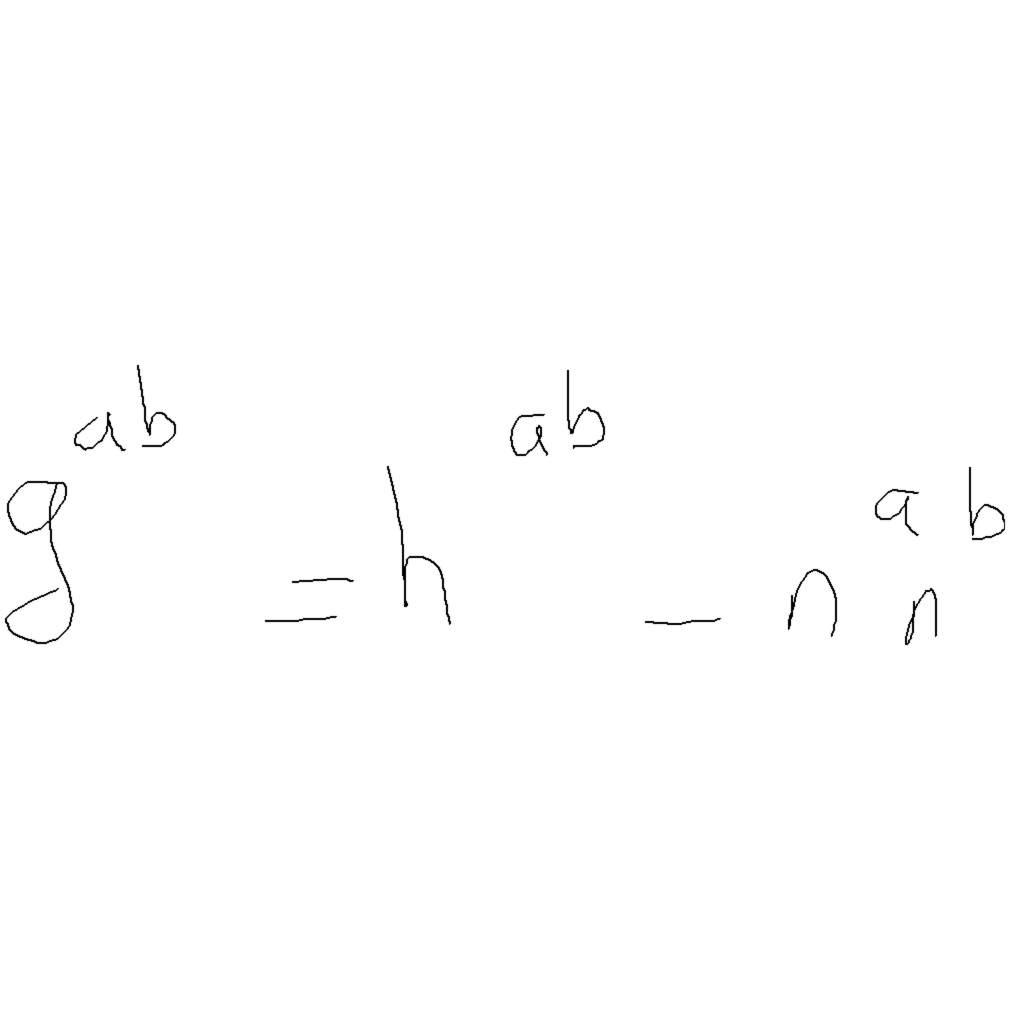 g^{ab} = h^{ab} - n^{a} n^{b}